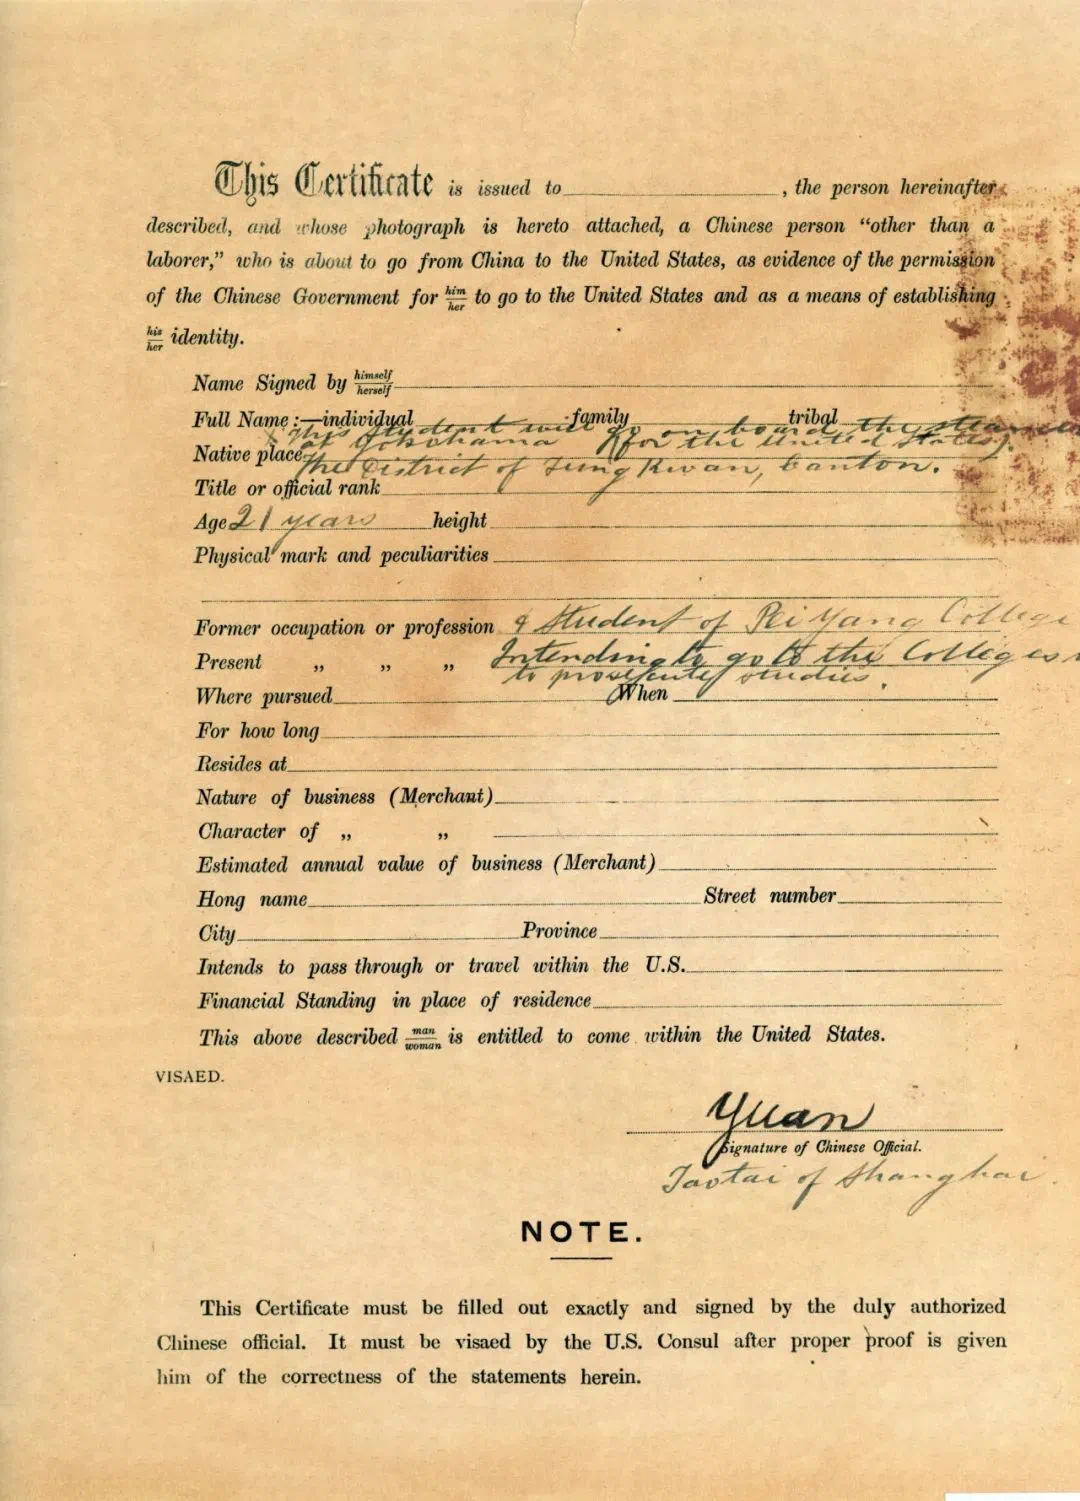 This Certificate is issued to , the person hereinafter
described, and whose photograph is hereto attached, a Chinese person “other than a
laborer,” who is about to go from China to the United States, as evidence of the permission
of the Chinese Government for him/her to go to the United States and as a means of establishing
his/her identity.
Name Signed by himself/herself
Full Name:—individual family tribal
This Student will go on board the
at Yokohama (for the United States).
Native place
the District of Tung Kwan, Canton.
Title or official rank
Age 21 years height
Physical mark and peculiarities
Former occupation or profession Student of Pei Yang College
Present „ „ „ Intending to go to the Colleges
to prosecute studies.
Where pursued When
For how long
Resides at
Nature of business (Merchant)
Character of „ „
Estimated annual value of business (Merchant)
Hong name Street number
City Province
Intends to pass through or travel within the U.S.
Financial Standing in place of residence
This above described man/woman is entitled to come within the United States.
VISAED.
Yuan
Signature of Chinese Official.
Taotai of Shanghai.
NOTE.
This Certificate must be filled out exactly and signed by the duly authorized
Chinese official. It must be visaed by the U.S. Consul after proper proof is given
him of the correctness of the statements herein.